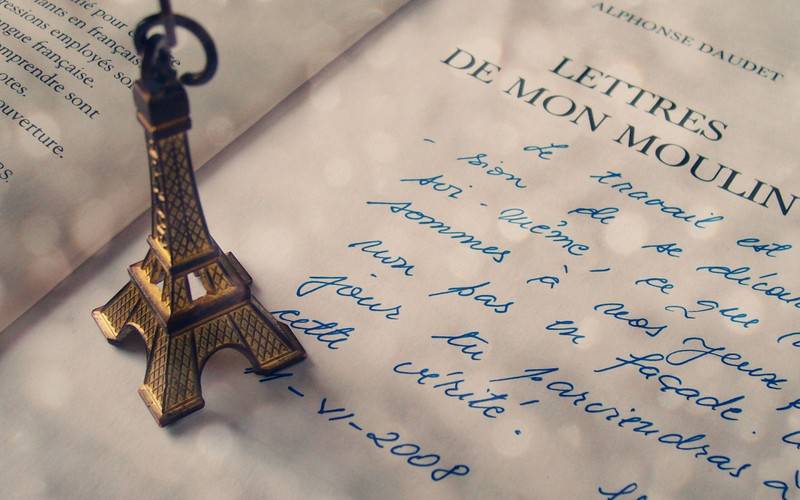 tié pour
ants en français
ressions employés so
ngue française.
omprendre sont
otes.
ouverture.
RS.
ALPHONSE DAUDET
LETTRES
DE MON MOULIN
Le travail est
- sion de se décou
soi-même, ce que n
sommes à nos yeux p
non pas en façade.
jour tu parviendras à
cette vérité.
11-VI-2008